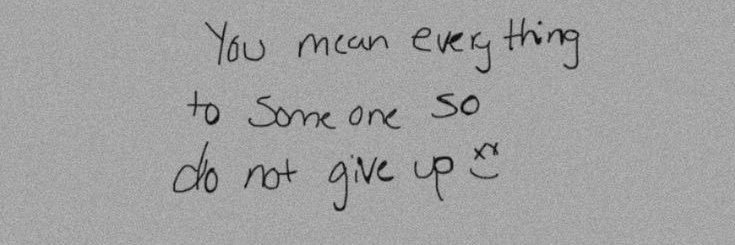 You mean every thing
to some one so
do not give up xx